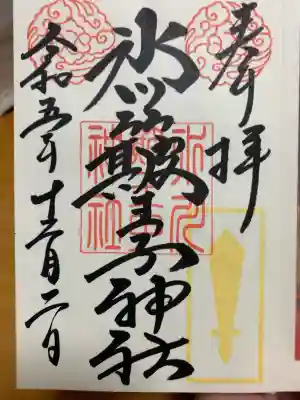 奉拝
氷川簸王子神社
令和五年十二月二日